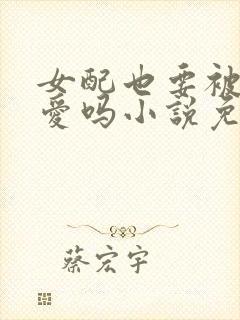 女配也要被
爱吗小説免
蔡宏宇